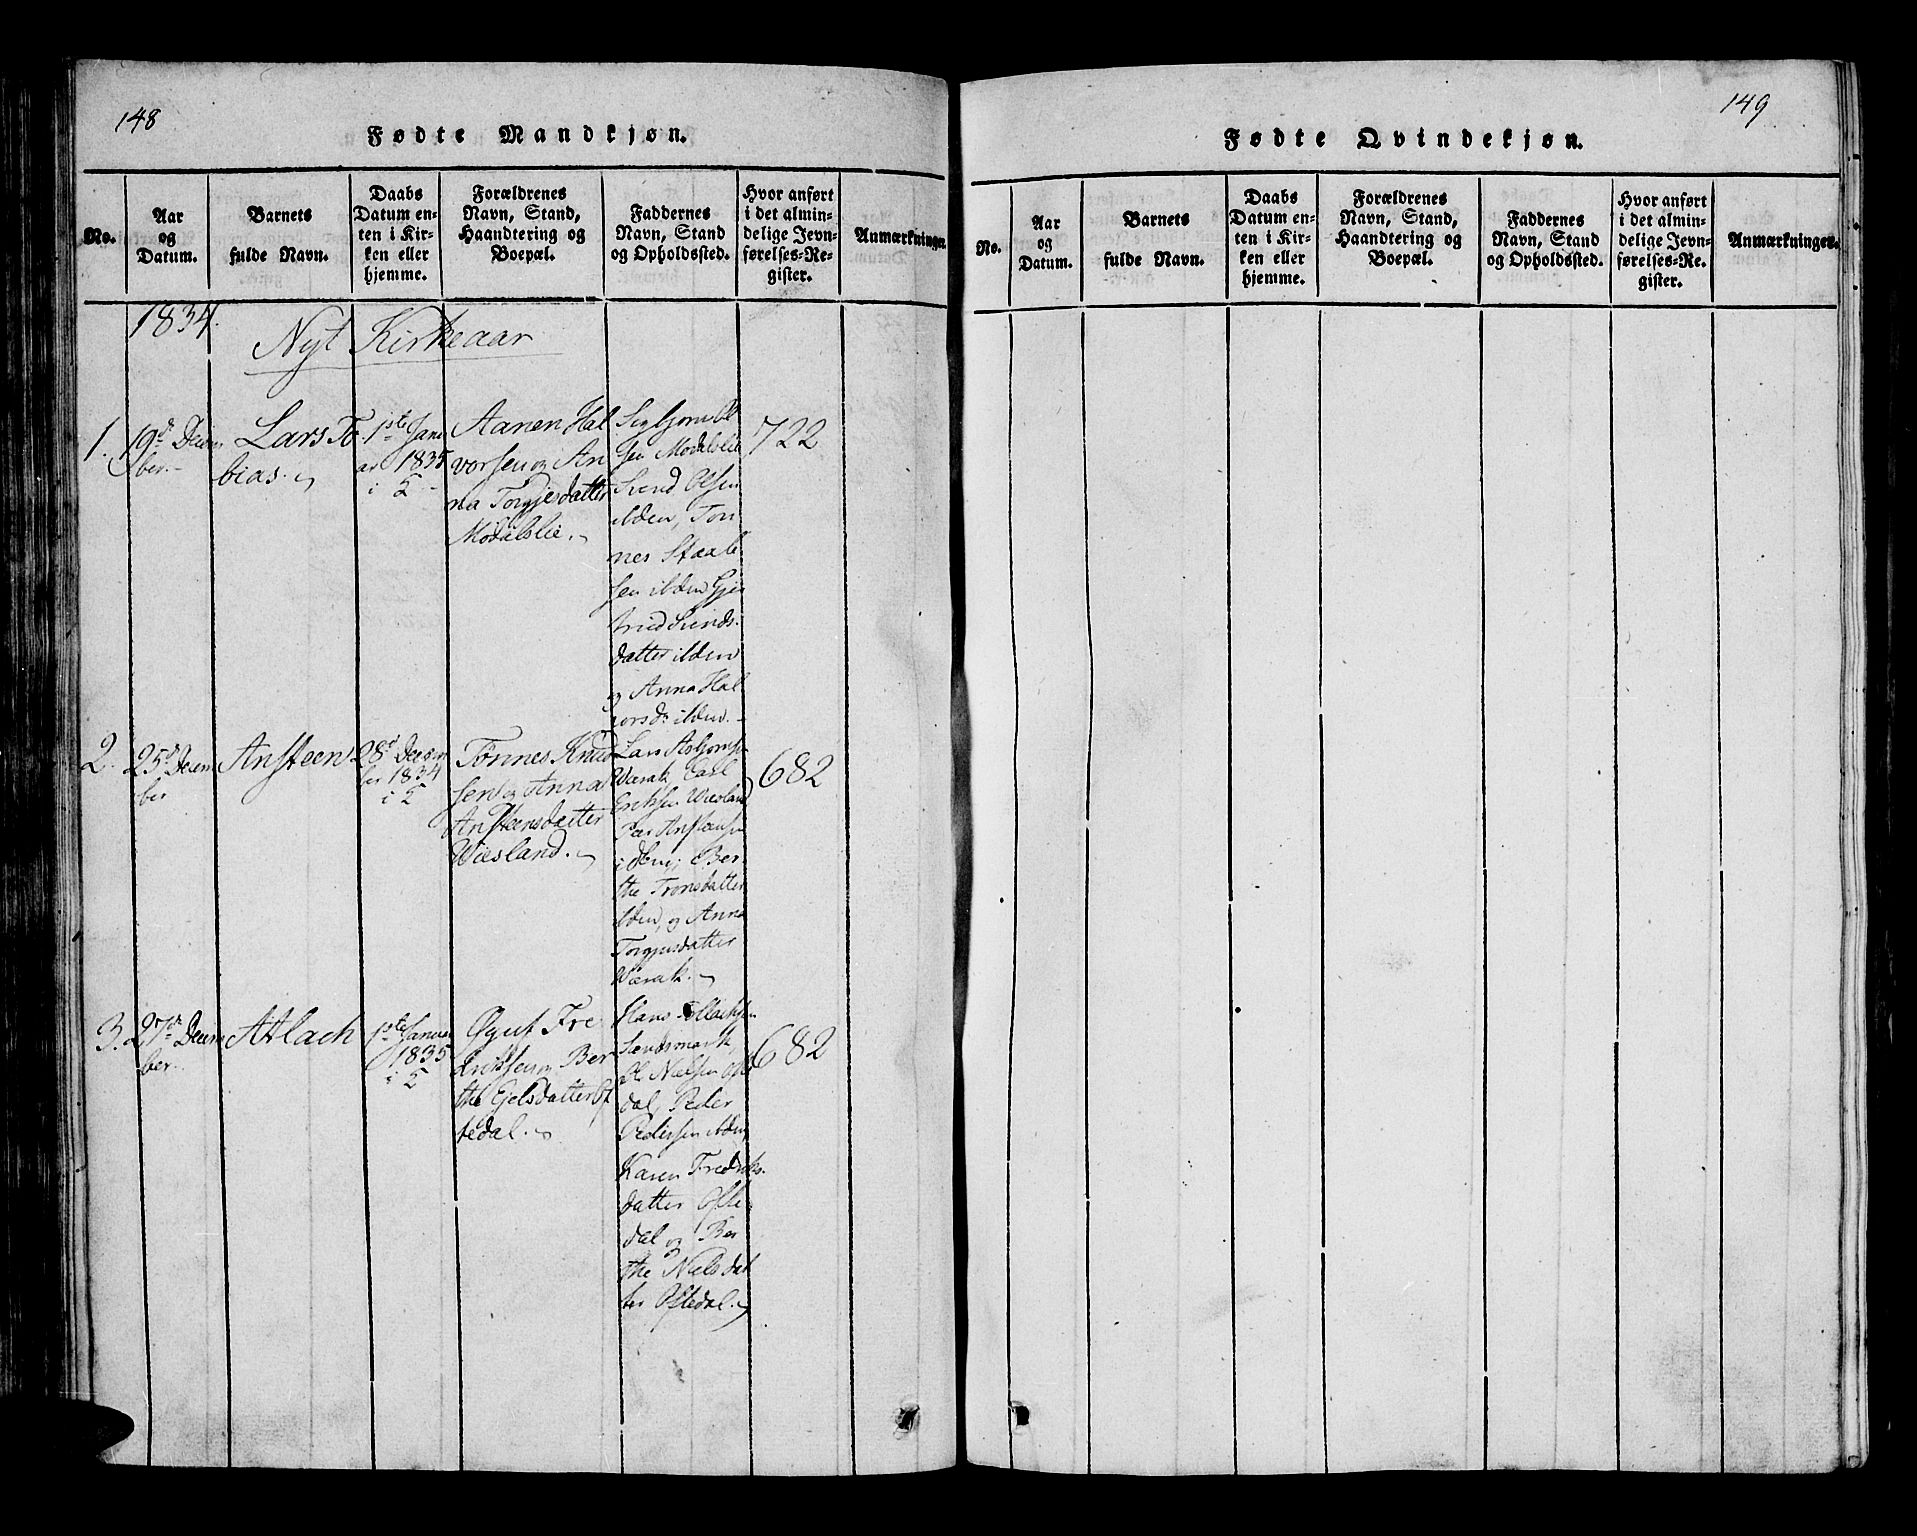 148
Fødte Mandkjøn.
No.
Aar
og
Datum.
Barnets
fulde Navn.
Daabs
Datum en-
ten i Kir-
ken eller
hjemme.
Forældrenes
Navn, Stand,
Haandtering og
Boepæl.
Faddernes
Navn, Stand
og Opholdssted.
Hvor anført
i det almin-
delige Jevn-
førelses-Re-
gister.
Anmærkninger.
1834.
Nyt Kirkeaar
1.
19de Decem
ber.
Lars To
bias.
1ste Janu
ar 1835
i
Aanen Hal
vorsen og An
na Torgjesdatter
Modalslie.
Sigbjorn Ol
sen Modalslie
Svend Olsen
ibden, Ton
nes Staale
sen ibden Gje
trud Svends
datter ibden
og Anna Hal
vorsdr ibden.
722
2.
25de Decem
ber
Ansteen
28de Decem
ber 1834
i
Tønnes Knud
sen og Anna
Ansteensdatter
Wiesland.
Lars Asbjornsen
Wærak, Carl
Eriksen Wiesland
Peer Ansteensen
Ber
the Tronsdatter
ibden, og Anna
Torgjusdatter
Wærak.
682
3.
27de Decem
ber.
Atlach
1ste Januar
1835
i
Øyuf Fre
driksen og Ber
the Ejelsdatter Of
tedal.
Hans Tollachsen
Svendsmark,
Ole Nielsen Ofte
dal, Peder
Pedersen ibden,
Karen Fredriks
datter Ofte
dal og Ber
the Nielsdat
ter Oftedal.
682
149
Fødte Qvindekjøn.
No.
Aar
og
Datum.
Barnets
fulde Navn.
Daabs
Datum en-
ten i Kir-
ken eller
hjemme.
Forældrenes
Navn, Stand,
Haandtering og
Boepæl.
Faddernes
Navn, Stand
og Opholdssted.
Hvor anført
i det almin-
delige Jevn-
førelses-Re-
gister.
Anmærkninger.